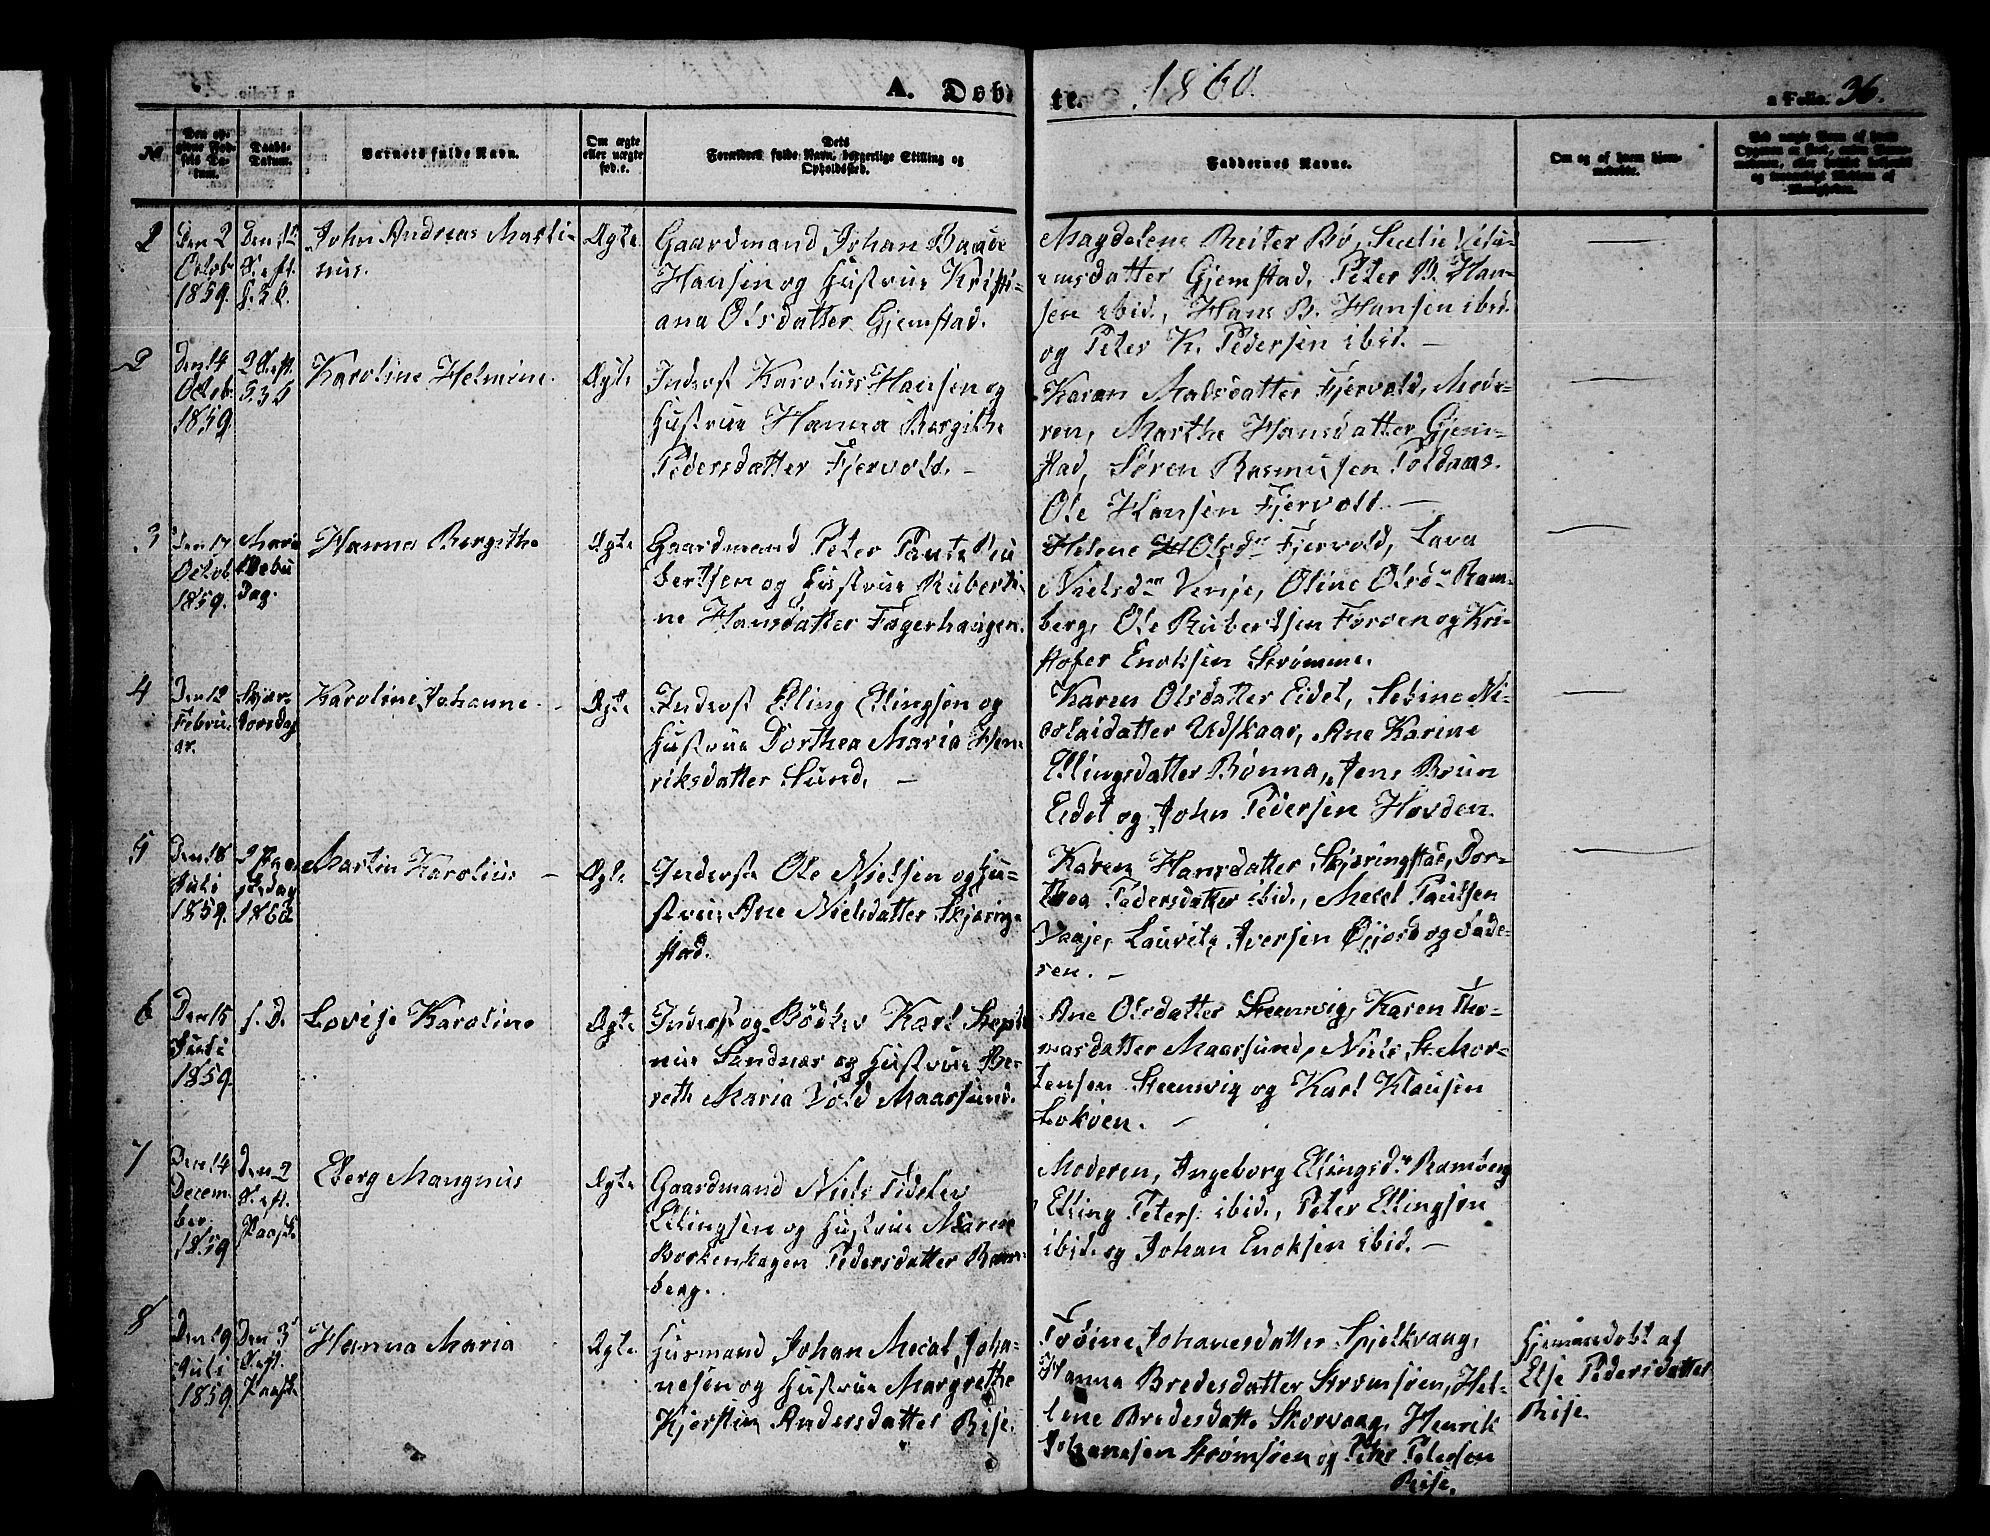 A. Døbte. 1860. a Folio. 36.
№
Den opgivne Fødsels Datum.
Daabs-Datum.
Barnets fulde Navn.
Om ægte eller uægte født.
Dets Forældres fulde Navn, borgerlige Stilling og Opholdssted.
Faddernes Navne.
Om og af hvem hjemmedøbt.
Den 2 Octob. 1859.
John Andreas Martinus.
Ægte
Gaardmand Johan Baade
Hansen og Hustrue Kristi-
ana Olsdatter Gjemstad.
Magdelene Reiter Bø,
datter Gjemstad, Peter B. Han-
sen ibid., Hans B. Hansen ibid.
og Peter K. Pedersen ibid. —
2
Den 14 Octob. 1859
Karoline Helmine
Ægte
Inderst Karolius Hansen og
Hustrue Hanna Bergithe
Pedersdatter Fjervold. —
Karen Madsdatter Fjervold, Mode-
ren, Marthe Hansdatter Gjem-
stad, Søren Rasmussen Toldaas.
Ole Hansen Fjervold. —
3
Den 17 Octob 1859.
Maria Bebu Dag.
Hanna Bergithe
Ægte
Gaardmand Peter Ru
bertsen og Hustrue Ruberti-
ne Hansdatter Fagerhaugen.
Helene Olsdr Fjervold, Lava
Nielsdr Venje, Oline Olsdr Ram-
berg, Ole Rubertsen Forøen og Kri-
stofer Enoksen Strømme.
4
Den 12 Februar.
Skjær-torsdag
Karoline Johanne
Ægte
Inderst Elling Ellingsen og
Hustrue Dorthea Maria Hen-
riksdatter Sund. —
Karen Olsdatter Eidet, Ni-
colaidatter Udskaar, Ane Karine
Ellingsdatter Bønna, Jens Brun
Eidet og John Pedersen Hovden.
5
Den 18 Juli 1859
2 Paaskedag 1860
Martin Karolius
Ægte
Inderst Ole Nielsen og Hu-
strue Ane Nielsdatter Skjæring-
stad.
Karen Hansdatter Skjæringstad, Dor-
thea Pedersdatter ibid., Paulsen
Vaaje, Lauritz Iversen og Fade-
ren. —
6
Den 15 Juli 1859
s. D.
Lovise Karoline
Ægte
Inderst og Bødker Karl
Sandnæs og Hustrue Be-
reth Maria Vold Maarsund.
Ane Olsdatter Steenvig, Karen Tho-
masdatter Maarsund, Niels St. Mor-
tensen Steenvig og Karl Klausen
Lokøen. —
7
Den 14 December 1859
Den 2 S. eft. Paaske
Eberg Mangnus
Ægte
Gaardmand Niels
Ellingsen og Hustrue Maren
Borkenhagen Pedersdatter Ram-
berg.
Moderen, Ingeborg Ellingsdr Ramberg
Elling Peters. ibid., Peter Ellingsen
ibid. og Johan Enoksen ibid. —
8
Den 19 Juli 1859
Den 3 S. eft. Paaske
Hanna Maria
Ægte
Husmand Johan Johan-
nesen og Hustrue Margrethe
Kjerstin Andersdatter Rise.
Johanesdatter Spjelkvaag,
Hanna Bredesdatter Strømsøen, Hel-
lene Bredesdatt. Skorvaag, Henrik
Johanesen Strømsøen og Peter Pedersen
Rise.
Hjemmedøbt af
Else Pedersdatter
Rise.